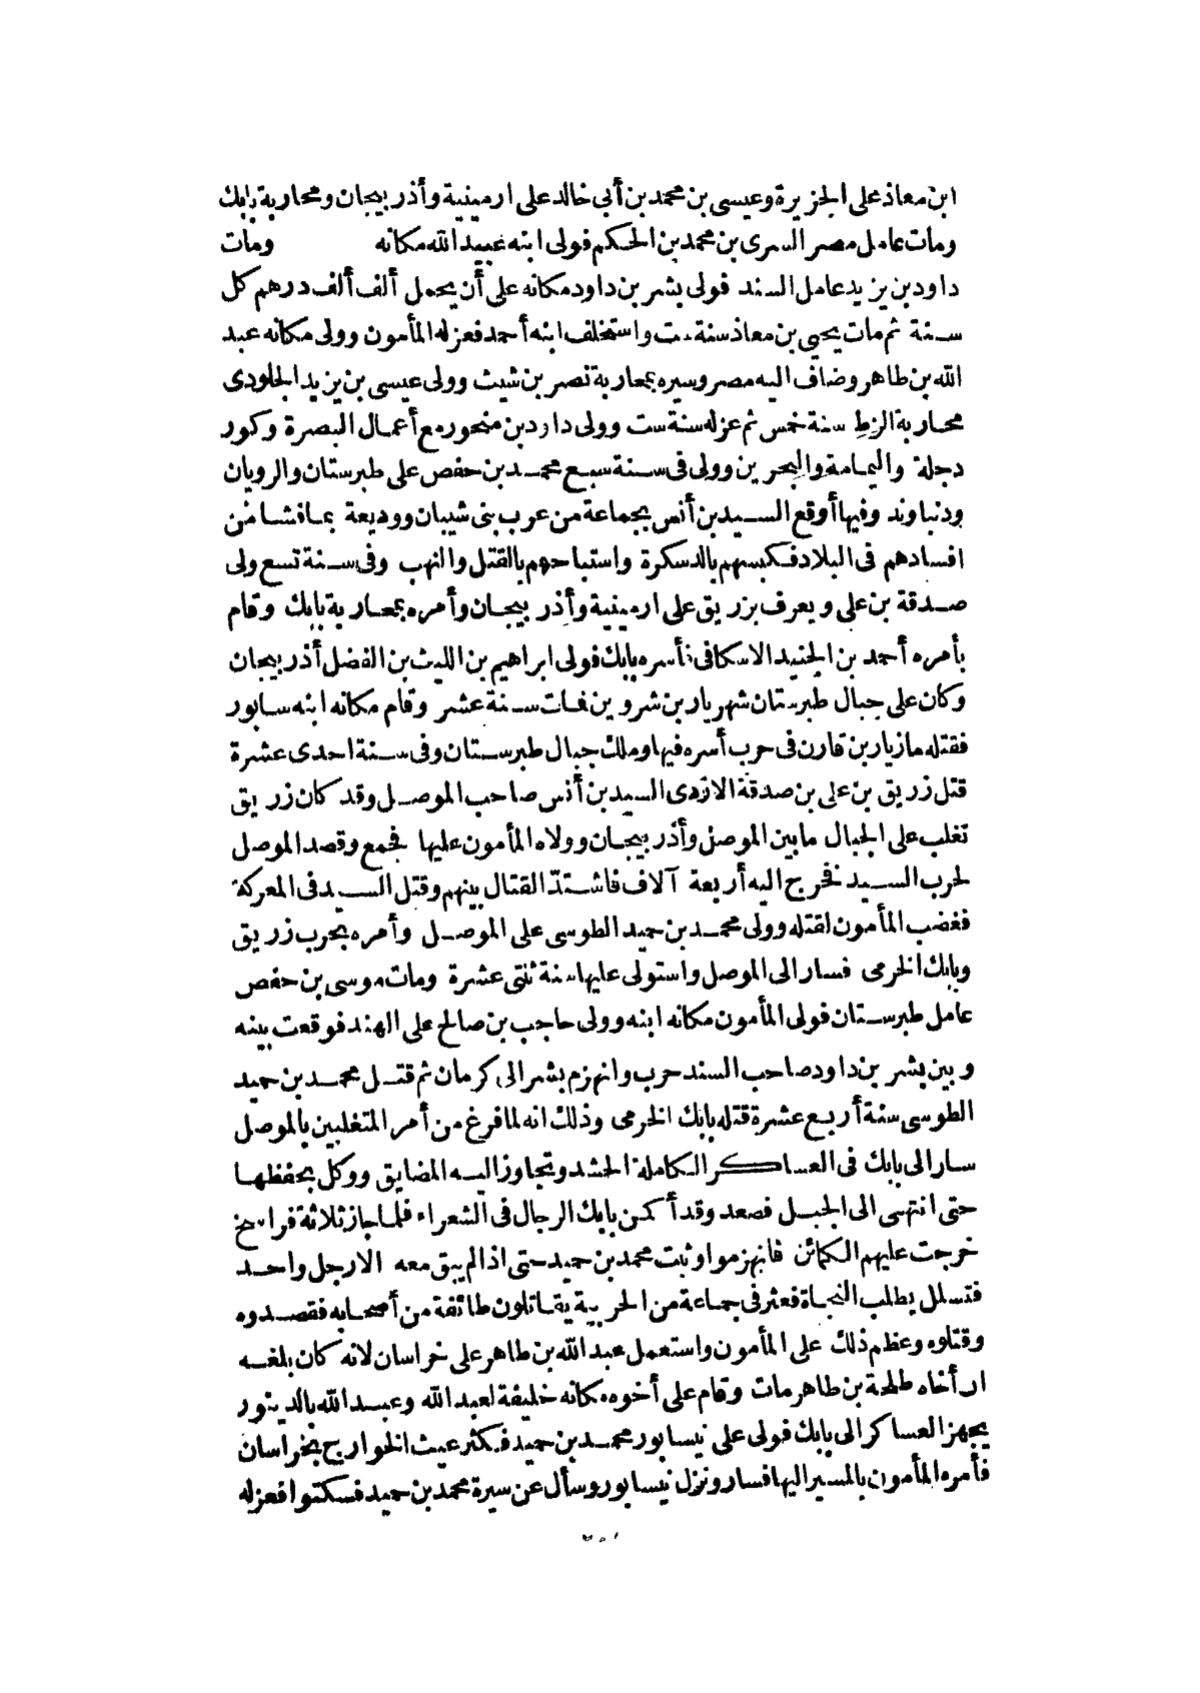 ابن معاذ على الجزيرة وعيسى بن محمد بن أبى خالد على ارمينية وأذربيجان ومحاربة بابك
ومات عامل مصر السرى بن محمد بن الحكم فولى ابنه عبيد الله مكانه ومات
داود بن يزيد عامل السند فولى بشر بن داود مكانه على أن يحمل ألف ألف درهم كل
سنة ثم مات يحيى بن معاذ سنة ست واستخلف ابنه أحمد فعزله المأمون وولى مكانه عبد
الله بن طاهر وضاف اليه مصر وسيره بمحاربة نصر بن شيث وولى عيسى بن يزيد الجلودى
محاربة الزط سنة خمس ثم عزله سنة ست وولى داود بن منحور مع أعمال البصرة وكور
دجلة واليمامة والبحرين وولى فى سنة سبع محمد بن حفص على طبرستان والرويان
ودنباوند وفيها أوقع السيد بن أنس بجماعة من عرب بنى شيبان ووديعة بما فشا من
افسادهم فى البلاد فكبسهم بالدسكرة واستباحهم بالقتل والنهب وفى سنة تسع ولى
صدقة بن على ويعرف بزريق على ارمينية وأذربيجان وأمره بمحاربة بابك وقام
بأمره أحمد بن الجنيد الاسكافى فأسره بابك فولى ابراهيم بن الليث بن الفضل أذربيجان
وكان على جبال طبرستان شهريار بن شروين فمات سنة عشر وقام مكانه ابنه سابور
فقتله مازيار بن قارن فى حرب أسره فيها وملك جبال طبرستان وفى سنة احدى عشرة
قتل زريق بن على بن صدقة الازدى السيد بن أنس صاحب الموصل وقد كان زريق
تغلب على الجبال ما بين الموصل وأذربيجان وولاه المأمون عليها فجمع وقصد الموصل
لحرب السيد فخرج اليه أربعة آلاف فاشتدّ القتال بينهم وقتل السيد فى المعركة
فغضب المأمون لقتله وولى محمد بن حميد الطوسى على الموصل وأمره بحرب زريق
وبابك الخرمى فسار الى الموصل واستولى عليها سنة ثنتى عشرة ومات موسى بن حفص
عامل طبرستان فولى المأمون مكانه ابنه وولى حاجب بن صالح على الهند فوقعت بينه
وبين بشر بن داود صاحب السند حرب وانهزم بشر الى كرمان ثم قتل محمد بن حميد
الطوسى سنة أربع عشرة قتله بابك الخرمى وذلك انه لما فرغ من أمر المتغلبين بالموصل
سار الى بابك فى العساكر الكاملة الحشد وتجاوز اليه المضايق ووكل بحفظها
حتى انتهى الى الجبل فصعد وقد أكمن بابك الرجال فى الشعراء فلما جاز ثلاثة فراسخ
خرجت عليهم الكمائن فانهزموا وثبت محمد بن حميد حتى اذا لم يبق معه الا رجل واحد
فتسلل يطلب النجاة فعثر فى جماعة من الحربية يقاتلون طائفة من أصحابه فقصدوه
وقتلوه وعظم ذلك على المأمون واستعمل عبد الله بن طاهر على خراسان لانه كان بلغه
ان أخاه طلحة بن طاهر مات وقام على أخوه مكانه خليفة لعبد الله وعبد الله بالدينور
يجهز العساكر الى بابك فولى على نيسابور محمد بن حميد فكثر عيث الخوارج بخراسان
فأمره المأمون بالمسير اليها فسار ونزل نيسابور وسأل عن سيرة محمد بن حميد فسكتوا فعزله